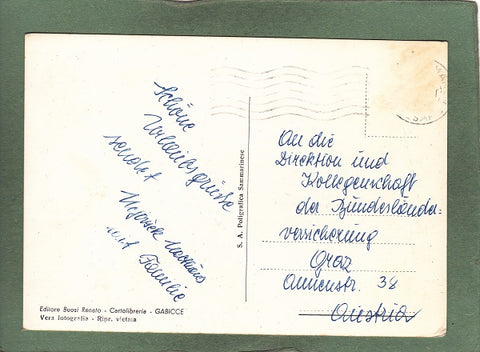 Schöne
Urlaubsgrüße
sendet
mit Familie
S. A. Poligrafica Sammarinese
An die
Direktion und
Kollegenschaft
der Bundesländer-
versicherung
Graz
Annenstr. 38
Austria
Editore Buosi Renato - Cartolibreria - GABICCE
Vera fotografia - Ripr. vietata